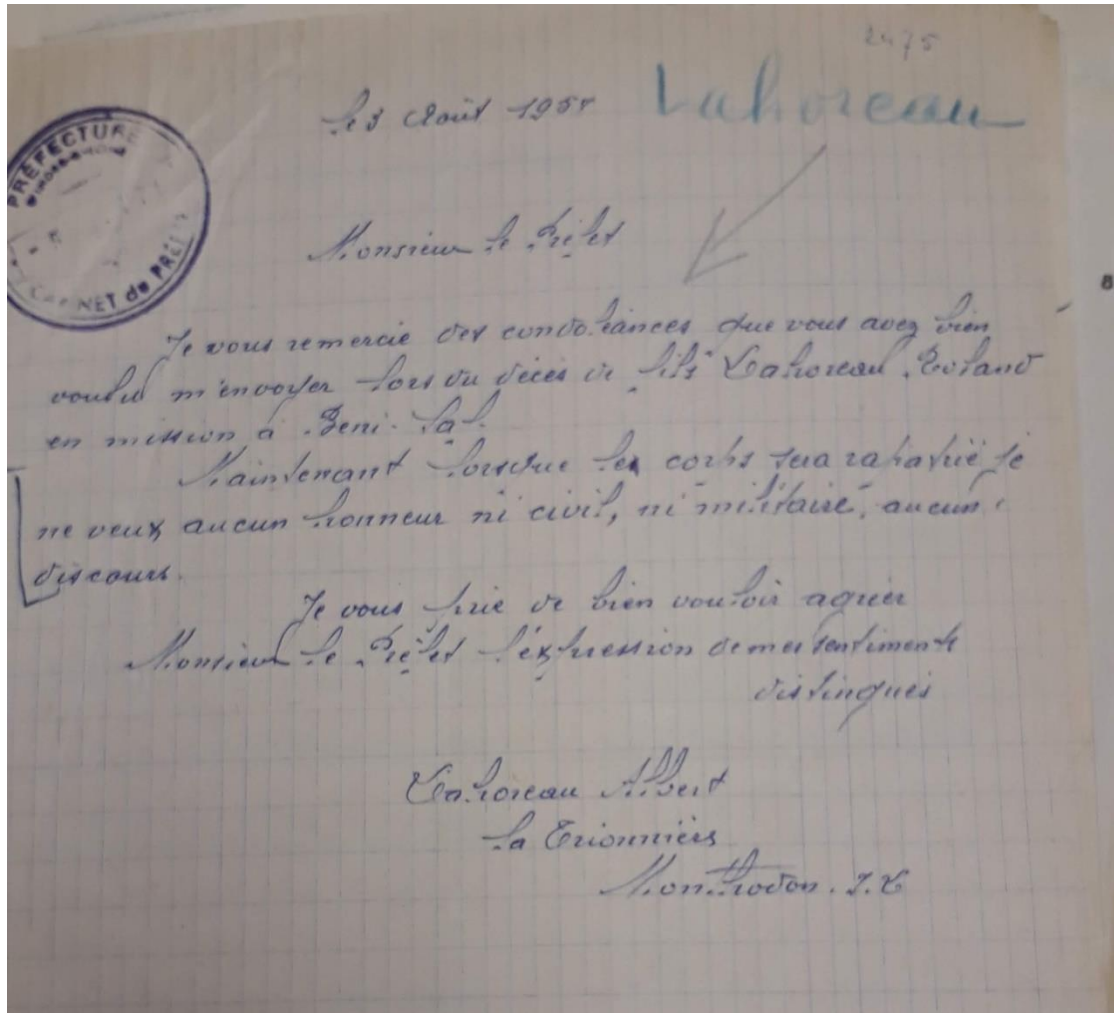 2475
Lahoreau
le 3 Août 195
PRÉFECTURE
CABINET du PRÉFET
Monsieur le Préfet
Je vous remercie des condoléances que vous avez bien
voulu m'envoyer lors du décès de fils Lahoreau Roland
en mission à Beni-Saf.
Maintenant lorsque les corps sera rapatrié je
ne veux aucun honneur ni civil, ni militaire, aucun
discours.
Je vous prie de bien vouloir agréer
Monsieur le Préfet l'expression de mes sentiments
distingués
Lahoreau Albert
la
Monthodon. I. L
8